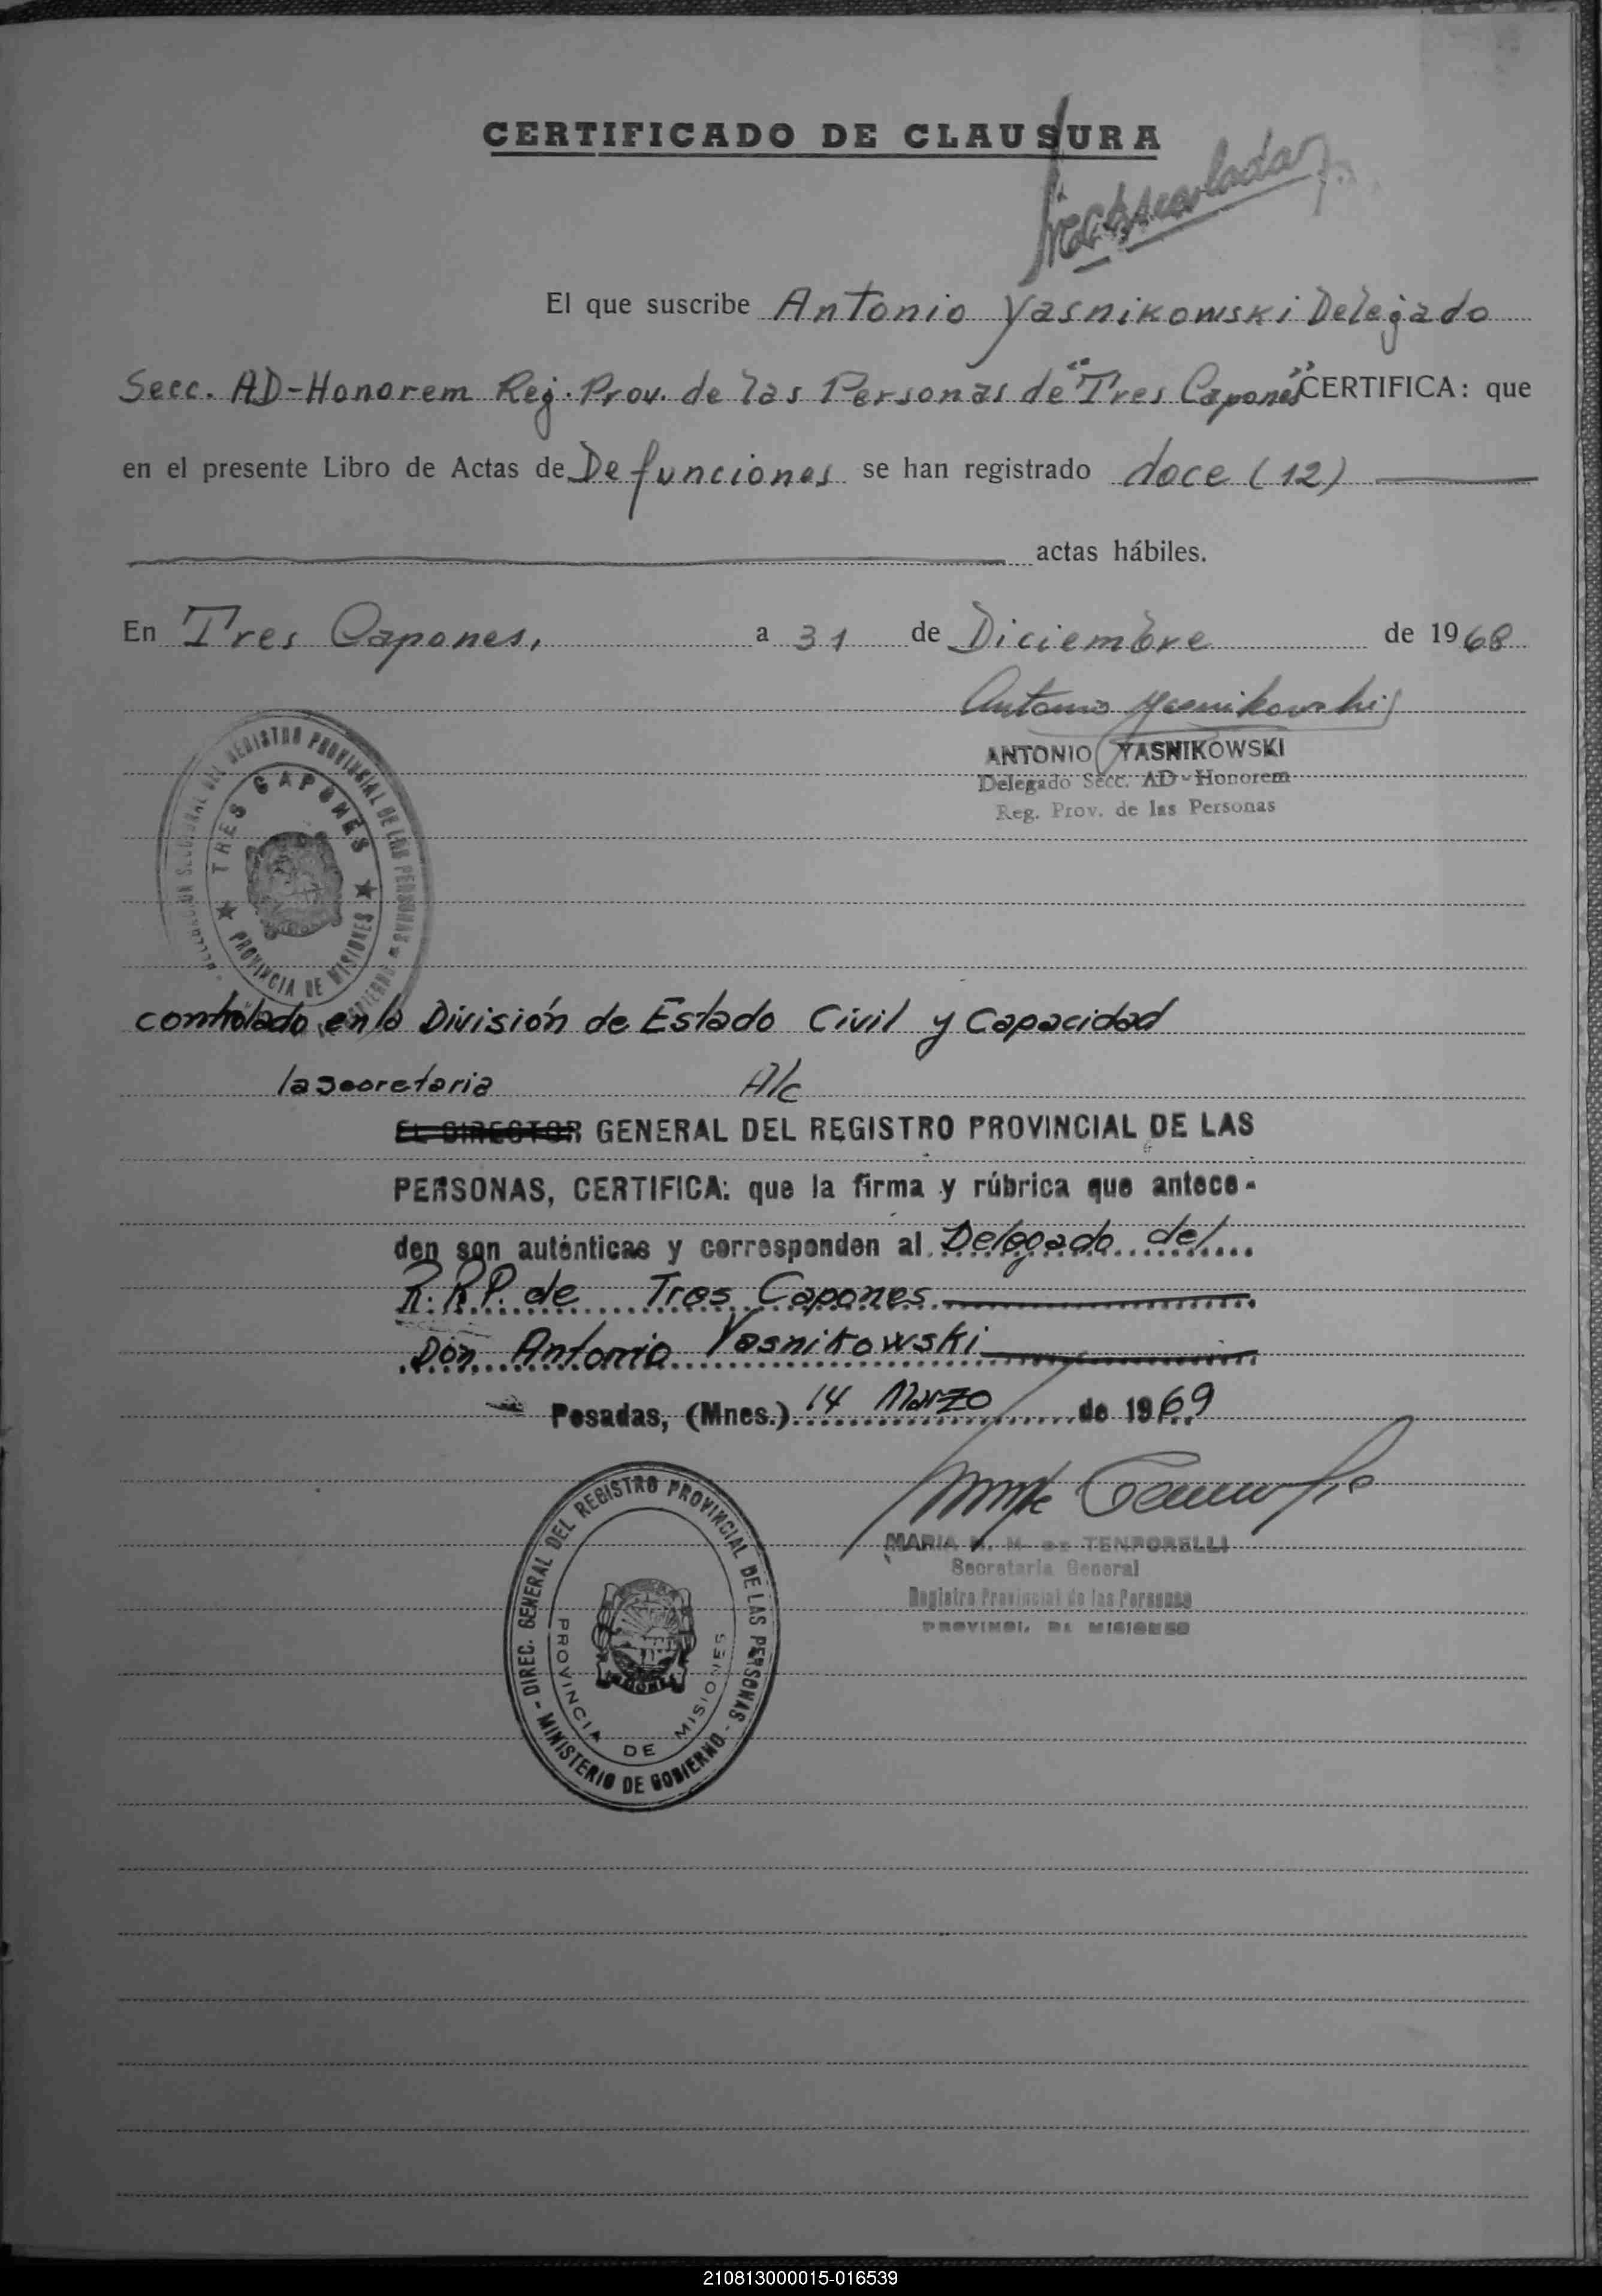 CERTIFICADO DE CLAUSURA
El que suscribe Antonio Yasnikowski Delegado
Secc. AD-Honorem Reg. Prov. de las Personas de "Tres Capones" CERTIFICA: que
en el presente Libro de Actas de Defunciones se han registrado doce (12)
actas hábiles.
En Tres Capones, a 31 de Diciembre de 1968
Antonio Yasnikowski
ANTONIO YASNIKOWSKI
Delegado Secc. AD-Honorem
Reg. Prov. de las Personas
DEL REGISTRO PROVINCIAL DE LAS PERSONAS
TRES CAPONES
PROVINCIA DE MISIONES
controlado en la División de Estado Civil y Capacidad
la secretaria A/c
EL DIRECTOR GENERAL DEL REGISTRO PROVINCIAL DE LAS
PERSONAS, CERTIFICA: que la firma y rúbrica que antece-
den son auténticas y corresponden al Delegado del
R.R.P. de Tres Capones
Don Antonio Yasnikowski
Posadas, (Mnes.) 14 Marzo de 1969
MARIA DE TEMPORELLI
Secretaria General
Registro Provincial de las Personas
DIREC. GENERAL DEL REGISTRO PROVINCIAL DE LAS PERSONAS - MINISTERIO DE GOBIERNO -
PROVINCIA DE MISIONES
210813000015-016539